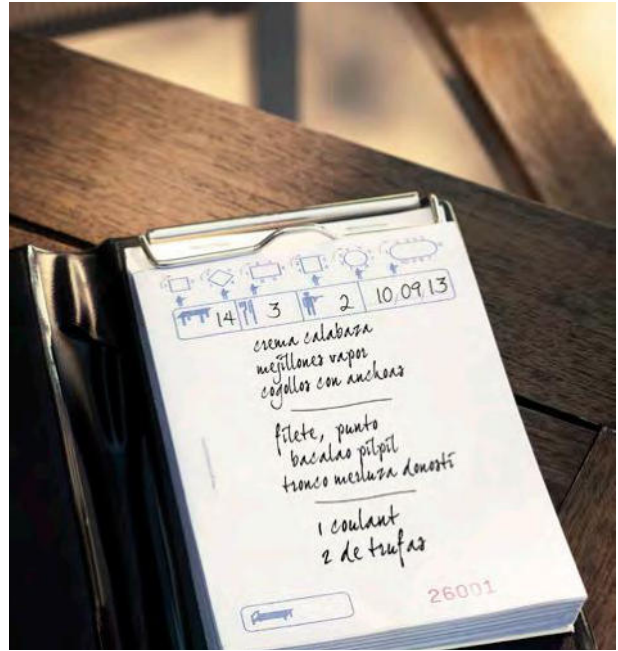 14 3 2 10/09/13
crema calabaza
mejillones vapor
cogollos con anchoas
filete, punto
bacalao pilpil
tronco merluza donosti
1 coulant
2 de trufas
26001